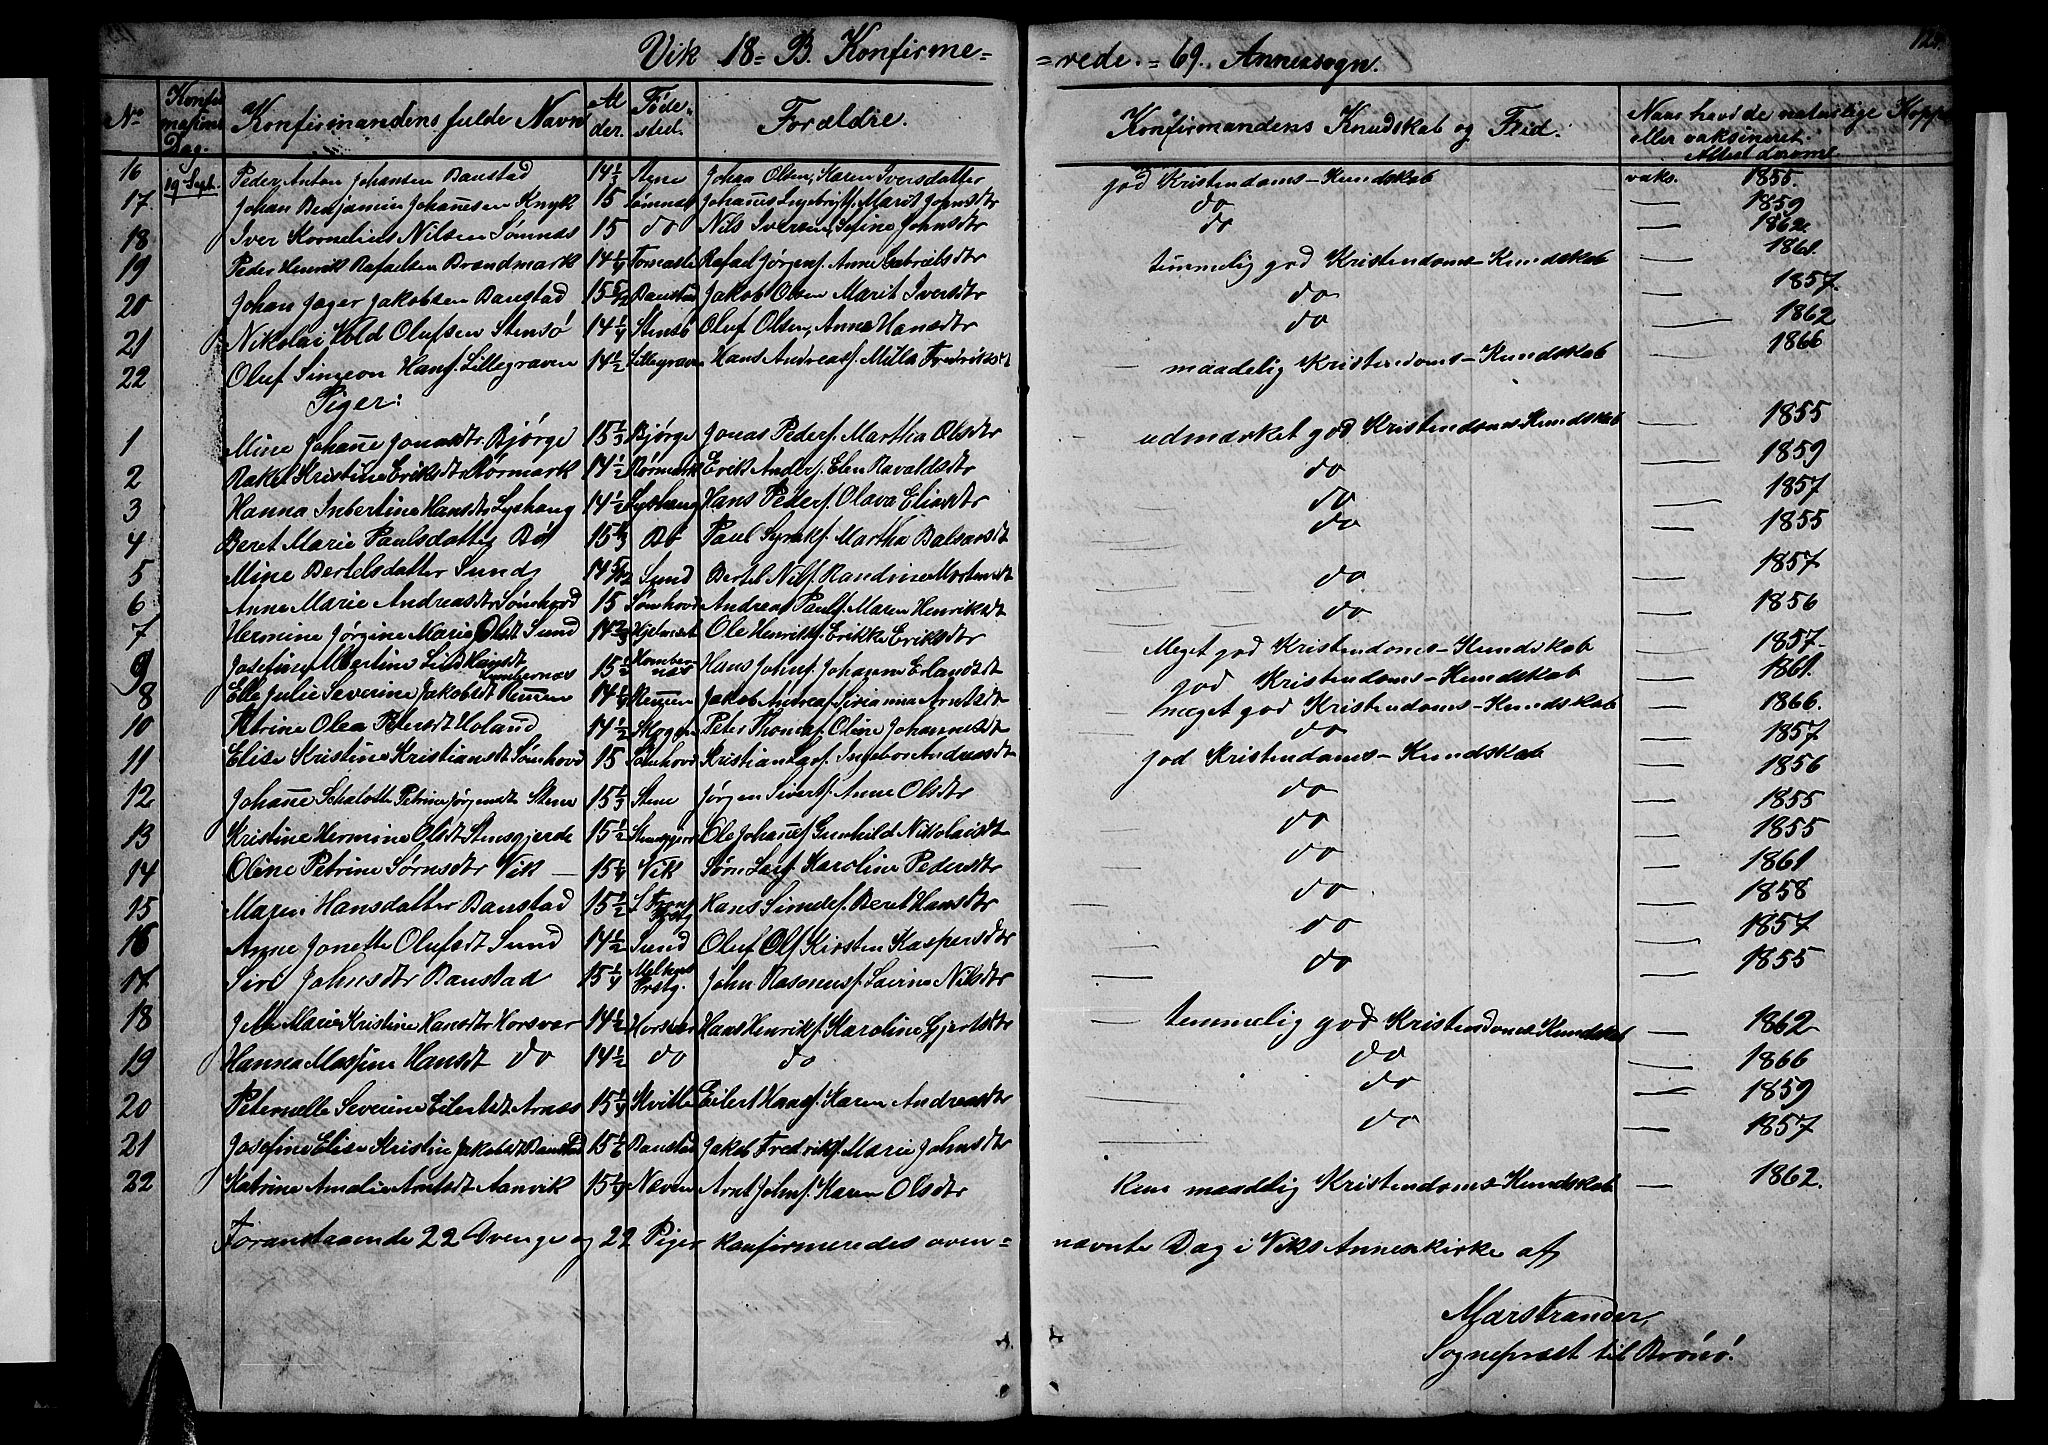 124.
Vik 18- B. Konfirme=
=rede. - 69. Annexsogn.
No Konfirmations Dag. Konfirmandens fulde Navn Alder. Fødested. Forældre. Konfirmandens Kundskab og Flid. Naar havt de naturlige Kopper eller vaksineret. Attest derom.
16 19 Sept. Peder Anton Johansen Baustad 14½ Johan Olsen, Karen Iversdatter god Kristendoms-Kundskab vaks. 1855.
17. Johan Benjamin Johañesen Knyk 15 Sømnæs Johañes Ingebrigtf. Marit Johnsdtr do — 1859
18 Iver Kornelius Nilsen Sømnæs 15 do Nils Iversen, Sefine Johnsdtr do — 1862
19 Peder Henrik Rafaelsen Brandmark 14¼ Rafael Jørgenf. Anne Gabrielsdtr temmelig god Kristendoms-Kundskab — 1861.
20 Johan Jager Jakobsen Baustad 15 5/12 Baustad Jakob Olsen Marit Iversdtr do — 1857.
21 Nikolai Vold Olufsen Stensø 14¼ Stensø Oluf Olsen, Anna Hansdtr do — 1862
22 Oluf Simeon Hansf. Lillegraven 14½ Lillegraven Hans Andreasf. Milla Fredriksdt — maadelig Kristendoms-Kundskab — 1866
Piger:
1 Mine Johañe Jonasdtr. Bjørge 15⅓ Bjørge Jonas Pederf. Martha Olsdtr udmærket god Kristendoms Kundskab — 1855
2 Rakel Kristine Eriksdtr Rørmark 14½ Rørmark Erik Anderf. Elen Ravaldsdtr do — 1859
3 Hanna Inbertine Hansdtr Lyshaug 14½ Lyshaug Hans Pederf. Olava Eliasdtr do — 1857
4 Beret Marie Paulsdatter Bø 15⅓ Bø Paul Martha Balsarsdt do — 1855
5 Mine Bertelsdatter Sund 14 5/12 Sund Bertel Nilf. Randine Mortensdt do — 1857
6 Anne Marie Andreasdtr Sømhovd 15 Sømhovd Andreas Paulf. Maren Henriksdt do — 1856
7 Hermine Jørgine Marie Olsdt Sund 14⅔ Ole Henrikf. Erikke Eriksdtr Meget god Kristendoms-Kundskab — 1857.
9 Josefine Mertine Lind Hansdt Kumbernæs 15½ Kombernæs Hans Johnf. Johanne Erlandsdt god Kristendoms-Kundskab — 1861.
8 Elle Julie Severine Jakobsdt Reuren 14¼ Jakob Andreasf. Sirianna Arntsdt meget god Kristendoms-Kundskab — 1866.
10 Petrine Olea Petersdt Holand 14½ Peter Thomasf. Oline Johannesdt do — 1857
11 Elise Kristine Kristiansdt Sømhovd 15 Sømhovd Kristian Ingebor Andreasdt god Kristendoms-Kundskab — 1856
12 Johañe Schalotte Petrine Jørgensdt Stene 15⅓ Stene Jørgen Sivertf. Anne Olsdtr do — 1855
13 Kristine Hermine Olsdt Stensgjerde 15½ Stensgjerd Ole Johañesf. Gunhild Nikolaisdt do — 1855
14 Oline Petrine Sørnsdtr Vik — 15¼ Vik Sørn Karoline Pedersdtr do — 1861
15 Maren Hansdatter Baustad 15½ Hans Beret Hansdtr do — 1858
16 Anne Jonette Olufsdt Sund 14½ Sund Oluf Olf. Kirsten Kaspersdtr do — 1857
17 Siri Johnsdtr Baustad 15¼ Prstg. John Rasmusf. Nilsdtr do — 1855
18 Marie Kristine Hansdtr Horsvær 14½ Horsvær Hans Henrikf. Karoline Gjertsdtr — temmelig god Kristendoms Kundskab — 1862
19 Hanna Hansdt do 14½ do do do — 1866
20 Peternelle Severine Eilertsdt Arnæs 15¼ Eilert Hansf. Karen Andreasdtr do — 1859
21 Josefine Elise Kristine Jakobsdt Baustad 15⅙ Baustad Jakob Fredrikf. Marie Johnsdtr do — 1857
22 Katrine Amalie Arntsdt Aanvik 15¼ Næven Arnt Johnf. Karen Olsdtr Kun maadelig Kristendoms-Kundskab — 1862.
Foranstaaende 22 Drenge og 22 Piger konfirmeredes oven=
nævnte Dag i Viks Annexkirke af
Marstrander,
Sognepræst til Brønø.